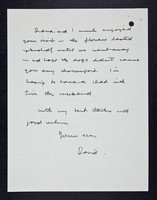 Diana and I much enjoyed
your visit - the flowers lasted
splendidly until we went away
- and hope the dogs didn't cause
you any discomfort. I'm
hoping to have a chat with
Jim this weekend.
With my best wishes and
good wishes
Yours ever,
David